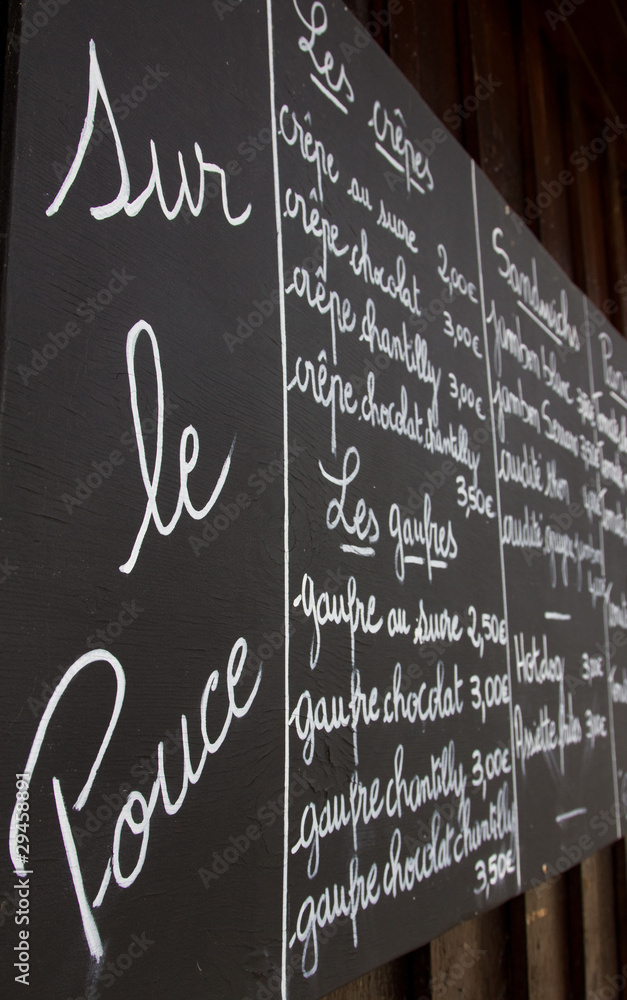 Sur
le
Pouce
Les crêpes
crêpe au sucre 2,00€
crêpe chocolat 3,00€
crêpe chantilly 3,00€
crêpe chocolat chantilly 3,50€
Les gaufres
gaufre au sucre 2,50€
gaufre chocolat 3,00€
gaufre chantilly 3,00€
gaufre chocolat chantilly 3,50€
Sandwichs
jambon blanc
jambon
crudité thon
crudité
Hotdog 3,00€
Assiette frites 3,00€
Adobe Stock
#29458891